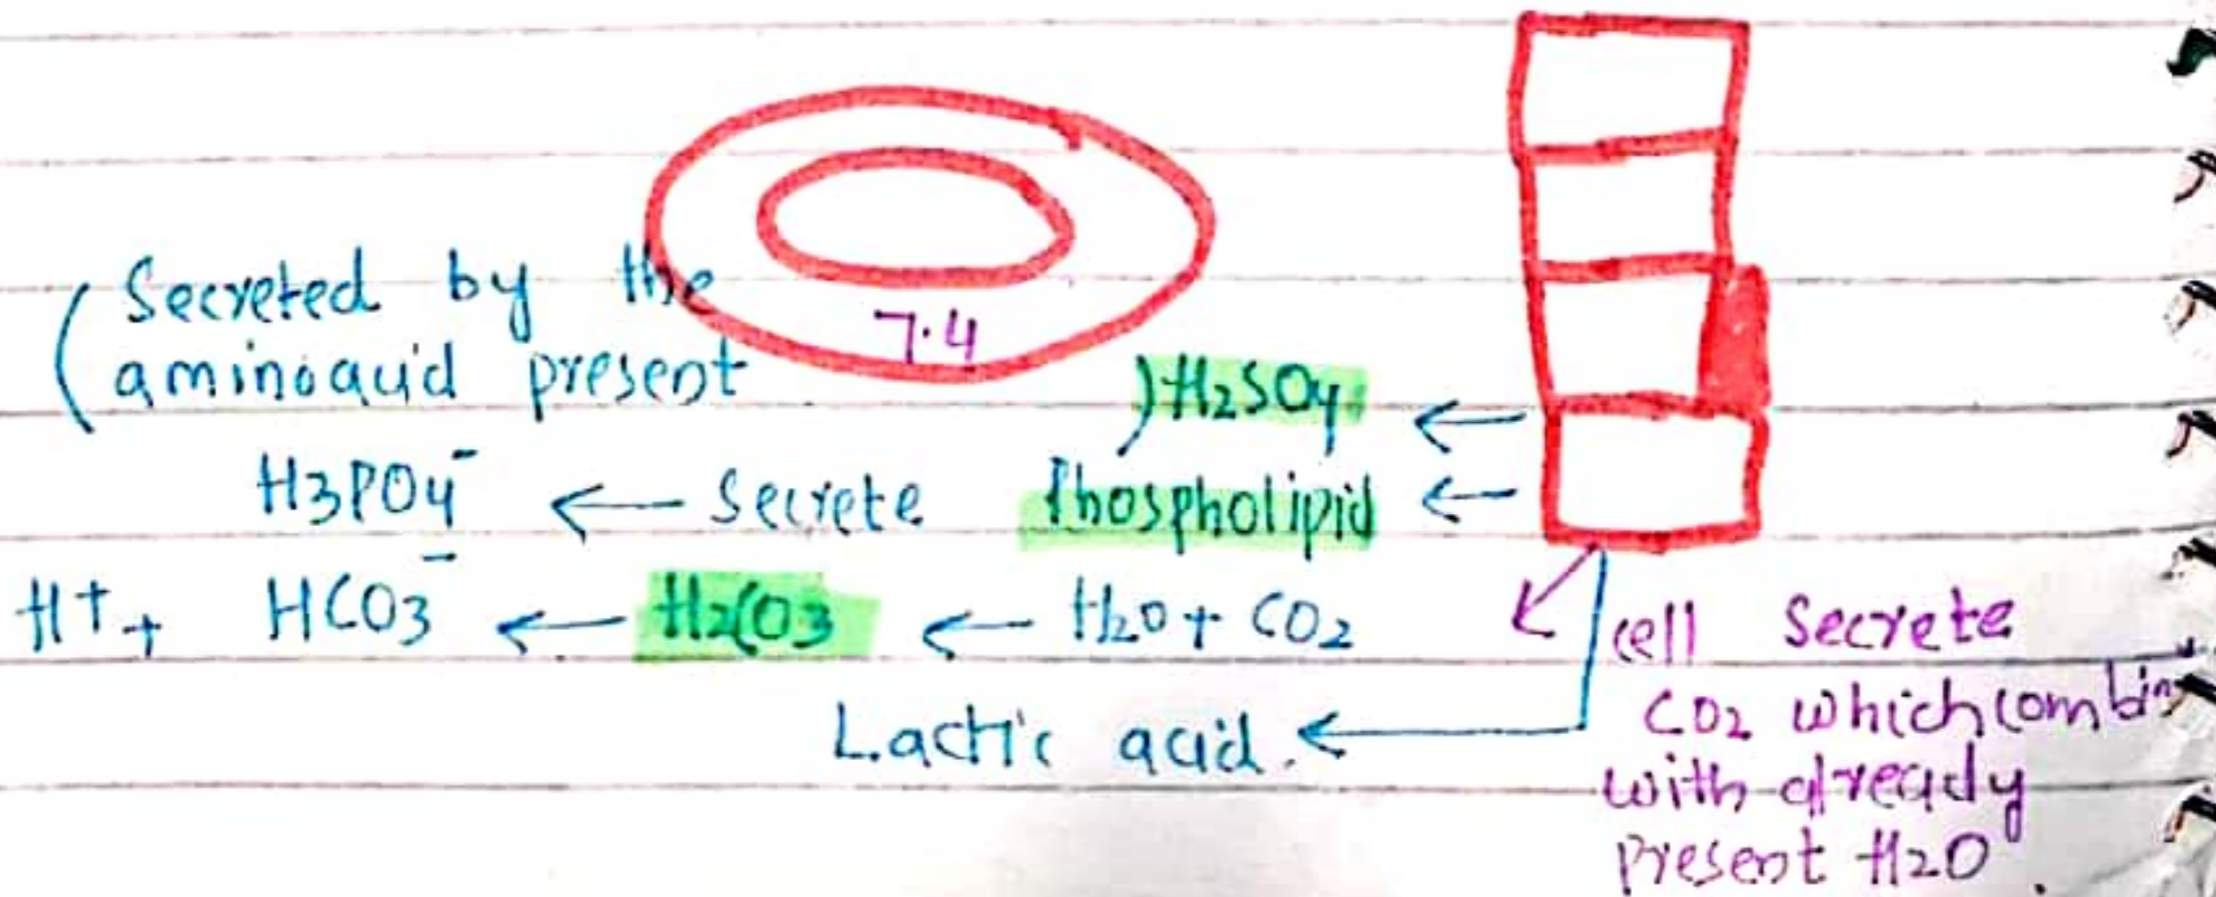 7.4
(Secreted by the
aminoacid present )H2SO4 ←
H3PO4⁻ ← Secrete Phospholipid ←
H+ + HCO3⁻ ← H2CO3 ← H2O + CO2
Lactic acid. ←
cell Secrete
CO2 which combin
with already
present H2O.